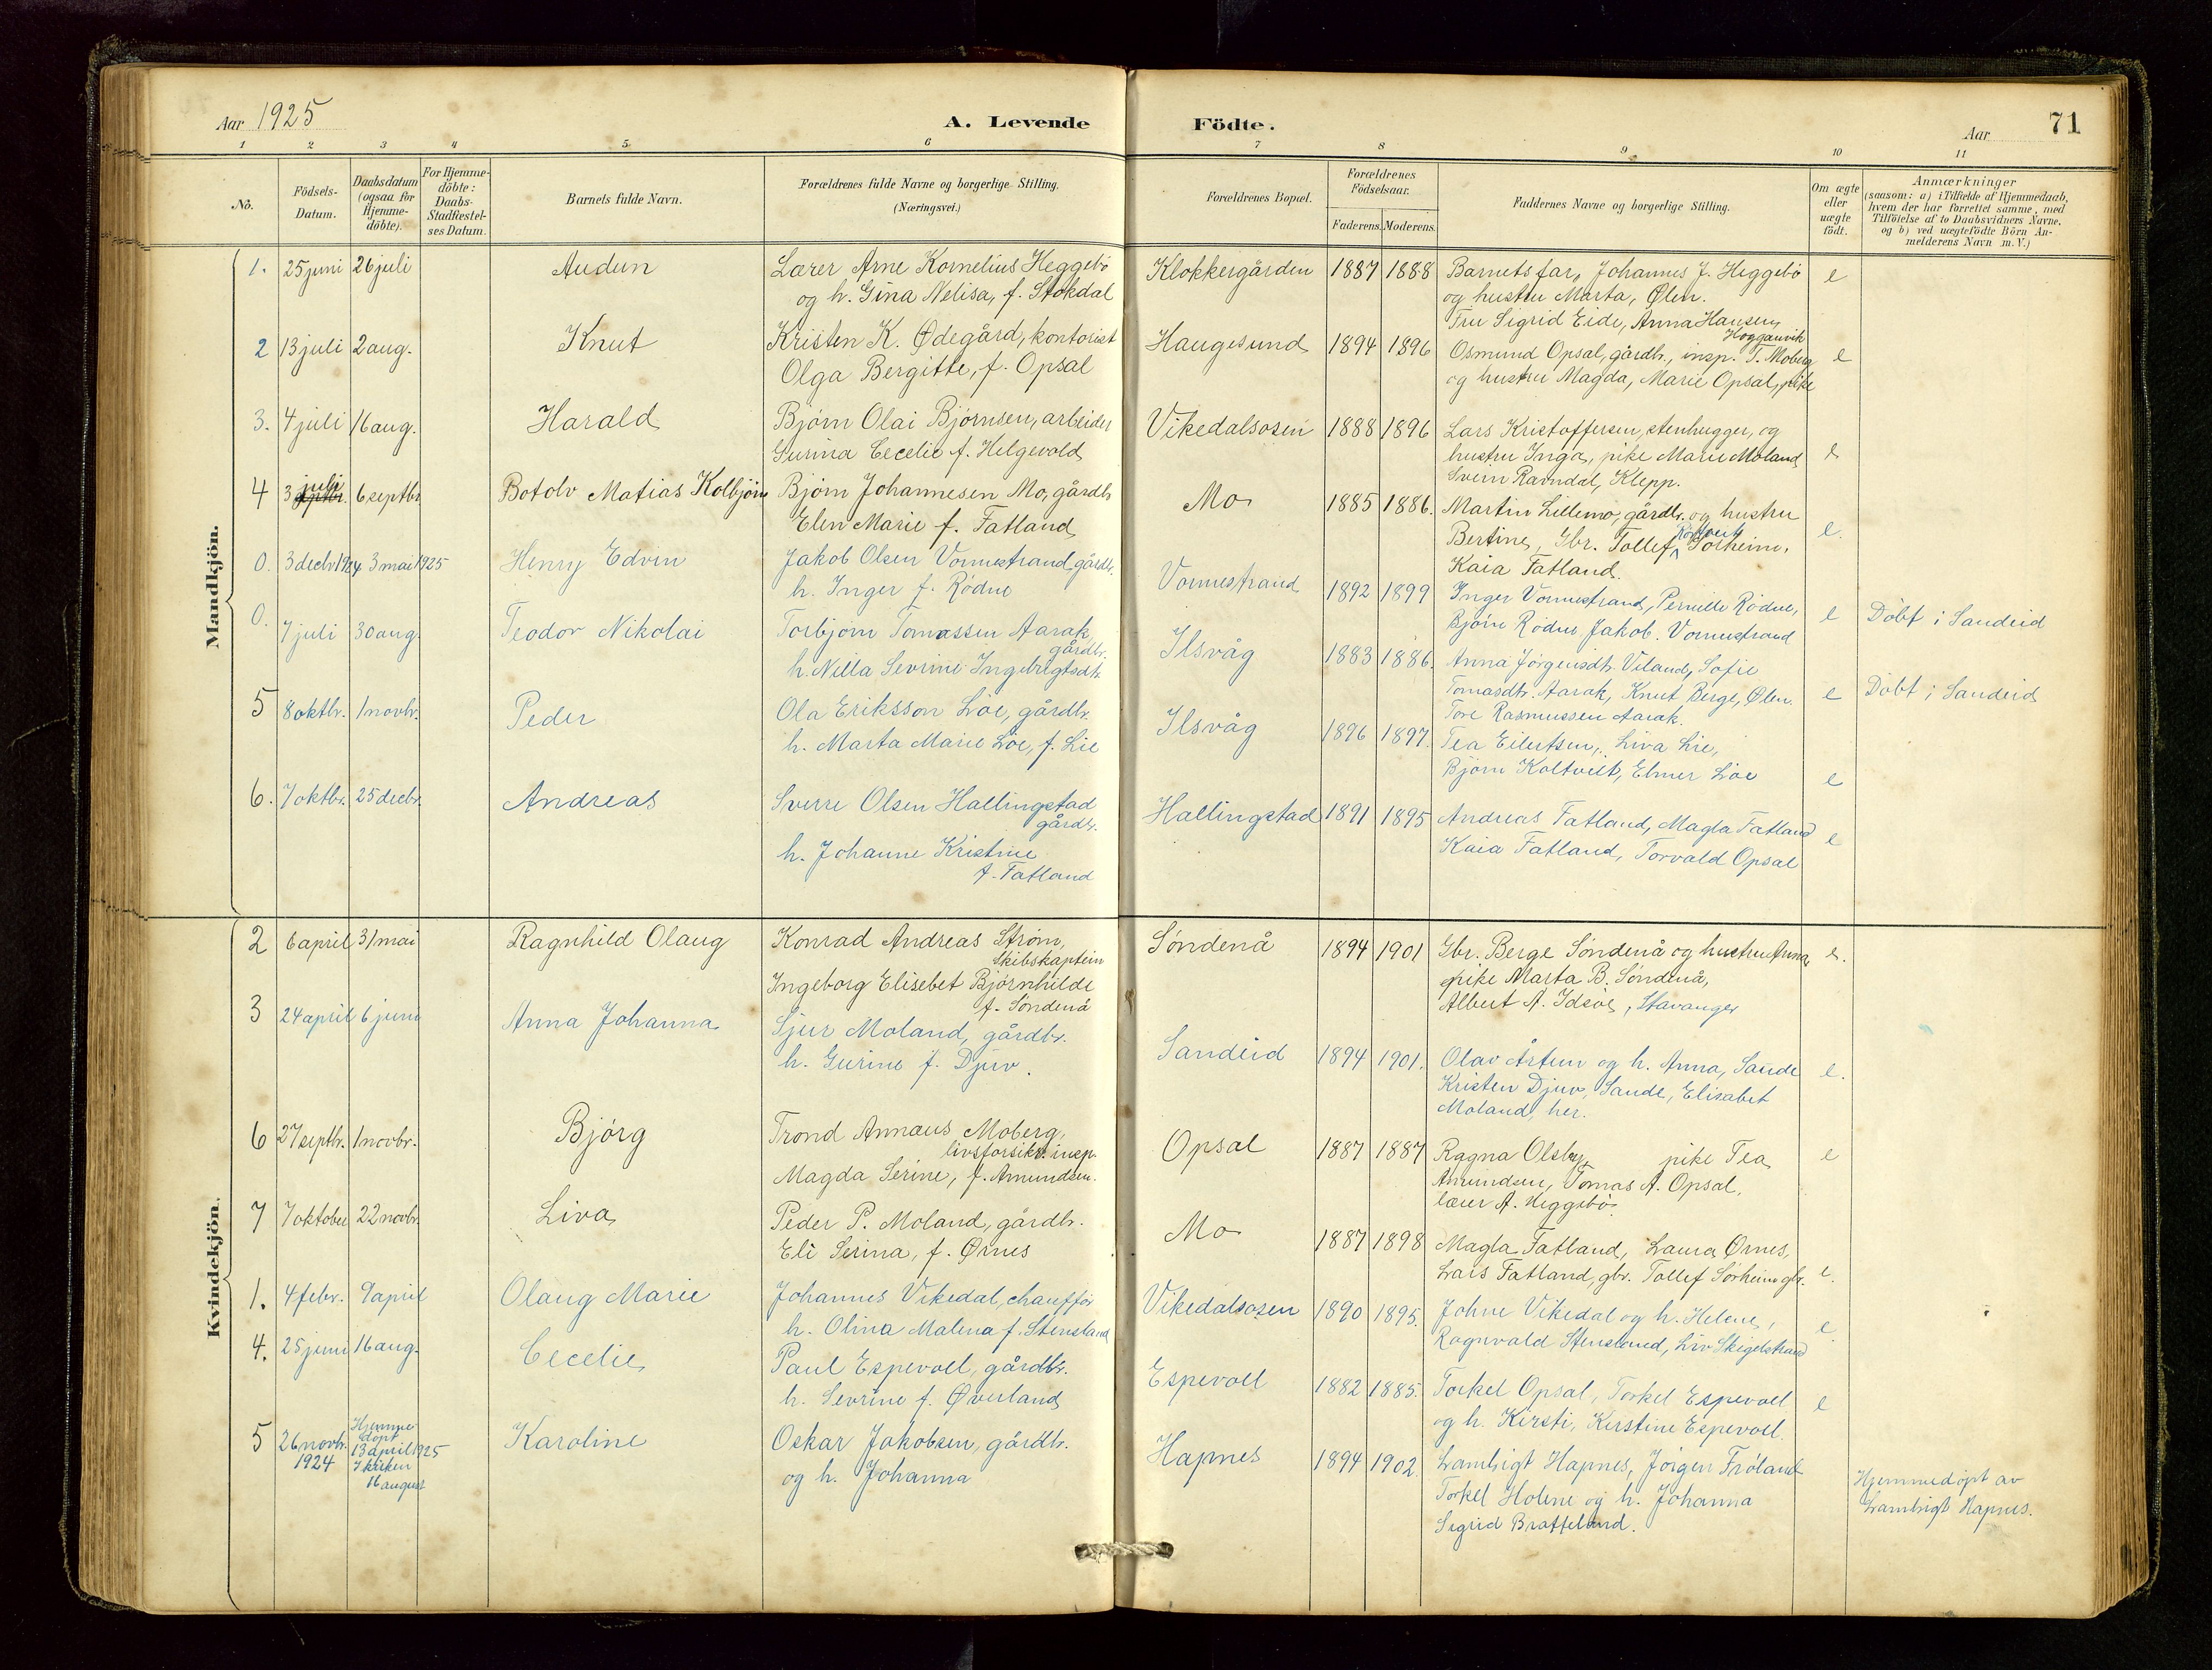 Aar 1925
A. Levende Födte.
Aar
71
1 2 3 4 5 6 7 8 9 10 11
No.
Födsels-Datum.
Daabsdatum (ogsaa for Hjemmedöbte).
For Hjemmedöbte: Daabs-Stadfæstelses Datum.
Barnets fulde Navn.
Forældrenes fulde Navne og borgerlige Stilling.
(Næringsvei.)
Forældrenes Bopæl.
Forældrenes Födselsaar.
Faderens. Moderens.
Faddernes Navne og borgerlige Stilling.
Om ægte eller uægte födt.
Anmærkninger
(saasom: a) i Tilfælde af Hjemmedaab, hvem der har forrettet samme, med Tilföielse af to Daabsvidners Navne, og b) ved uægtefödte Börn Anmelderens Navn m. V.)
Mandkjön.
1. 25 juni 26 juli Audun
Lærer Arne Kornelius Heggebø
og h. Gina Nelisa, f. Stokdal
Klokkergården 1887 1888
Barnets far, Johannes J. Heggebö
og hustru Marta, Ølen.
Fru Sigrid Eide, Anna Hansen,
Hogganvik
e
2 13 juli 2 aug. Knut
Kristen K. Ødegård, kontorist
Olga Bergitte, f. Opsal
Haugesund 1894 1896
Osmund Opsal, gårdb., insp. T. Moberg
og hustru Magda, Marie Opsal, pike
e
3. 4 juli 16 aug. Harald
Bjørn Olai Bjørnsen, arbeider
Surina Cecelie f. Helgevold
Vikedalsosen 1888 1896
Lars Kristoffersen, stenhugger, og
hustru Inga, pike Marie Moland
Svein Ravndal, Klepp.
e
4 3 juli 6 septbr. Botolv Matias Kolbjörn
Bjørn Johannesen Mo, gårdb.
Elen Marie f. Fatland
Mo 1885 1886.
Martin Lillemo, gårdbr. og hustru
Bertine, Gbr. Tollef Sørheim,
Kaia Fatland.
e.
0. 3 decbr 1924 3 mai 1925 Henry Edvin
Jakob Olsen Vormestrand, gårdbr.
h. Inger f. Rødne
Vormestrand 1892 1899
Inger Vormestrand, Pernille Rødne,
Bjørn Rødne, Jakob Vormestrand
e Døbt i Sandeid
0. 7 juli 30 aug. Teodor Nikolai
Torbjørn Tomassen Aarak,
gårdbr.
h. Nilla Sevrine Ingebrigtsdtr.
Ilsvåg 1883 1886.
Anna Jørgensdtr. Viland, Sofie
Tomasdtr. Aarak, Knut Berge, Ølen.
Tore Rasmussen Aarak.
e Døbt i Sandeid
5 8 oktbr. 1 novbr. Peder
Ola Eriksson Løe, gårdbr.
h. Marta Marie Løe, f. Lie
Ilsvåg 1896 1897.
Tea Eilertsen, Liva Lie,
Bjørn Koltveit, Elmer Løe
e
6. 7 oktbr. 25 decbr. Andreas
Sverre Olsen Hallingstad
gårdbr.
h. Johanne Kristine
f. Fatland
Hallingstad 1891 1895
Andreas Fatland, Magla Fatland
Kaia Fatland, Torvald Opsal
e
Kvindekjön.
2 6 april 31 mai Ragnhild Olaug
Konrad Andreas Strøm,
Skibskaptein
Ingeborg Elisebet Bjørnhilde
f. Søndenå
Søndenå 1894 1901
Gbr. Berge Søndenå og hustru Anna
pike Marta B. Søndenå,
Albert A. Idsøe, Stavanger
e.
3 24 april 6 juni Anna Johanna
Sjur Moland, gårdbr.
h. Gurine f. Djuv.
Sandeid 1894 1901.
Olav Årtun og h. Anna, Sande
Kristen Djuv, Sande, Elisabet
Moland, her.
e.
6 27 septbr. 1 novbr. Bjørg
Trond Annæus Moberg,
livsforsikr. insp.
Magda Serine, f. Amundsen.
Opsal 1887 1887
Ragna Olsby, pike Tea
Amundsen, Tomas A. Opsal,
lærer A. Heggebø
e
7 7 oktober 22 novbr. Liva
Peder P. Moland, gårdbr.
Eli Serina, f. Ørnes
Mo 1887 1898
Magla Fatland, Laura Ørnes,
Lars Fatland, gbr. Tollef Sørheim gbr.
e.
1. 4 febr. 9 april Olaug Marie
Johannes Vikedal, chauffør
h. Olina Malena f. Stensland
Vikedalsosen 1890 1895.
Johne Vikedal og h. Helene,
Ragnvald Stensland, Liv Skigelstrand
e
4. 25 juni 16 aug. Cecelie
Paul Espevoll, gårdbr.
h. Sevrine f. Øverland
Espevoll 1882 1885.
Torkel Opsal, Torkel Espevoll
og h. Kirsti, Kirstine Espevoll.
e
5 26 novbr. 1924
Hjemmedøpt 13 april 1925
I kirken
16 august
Karoline
Oskar Jakobsen, gårdbr.
og h. Johanna
Hapnes 1894 1902.
Lambrigt Hapnes, Jørgen Frøland
Torkel Holme og h. Johanna
Sigrid Bratteland.
Hjemmedøpt av
Lambrigt Hapnes.